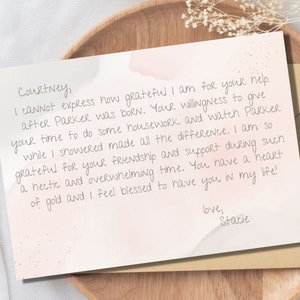 Courtney,
I cannot express how grateful I am for your help
after Parker was born. Your willingness to give
your time to do some housework and watch Parker
while I showered made all the difference. I am so
grateful for your friendship and support during such
a hectic and overwhelming time. You have a heart
of gold and I feel blessed to have you in my life!
love,
Stacie